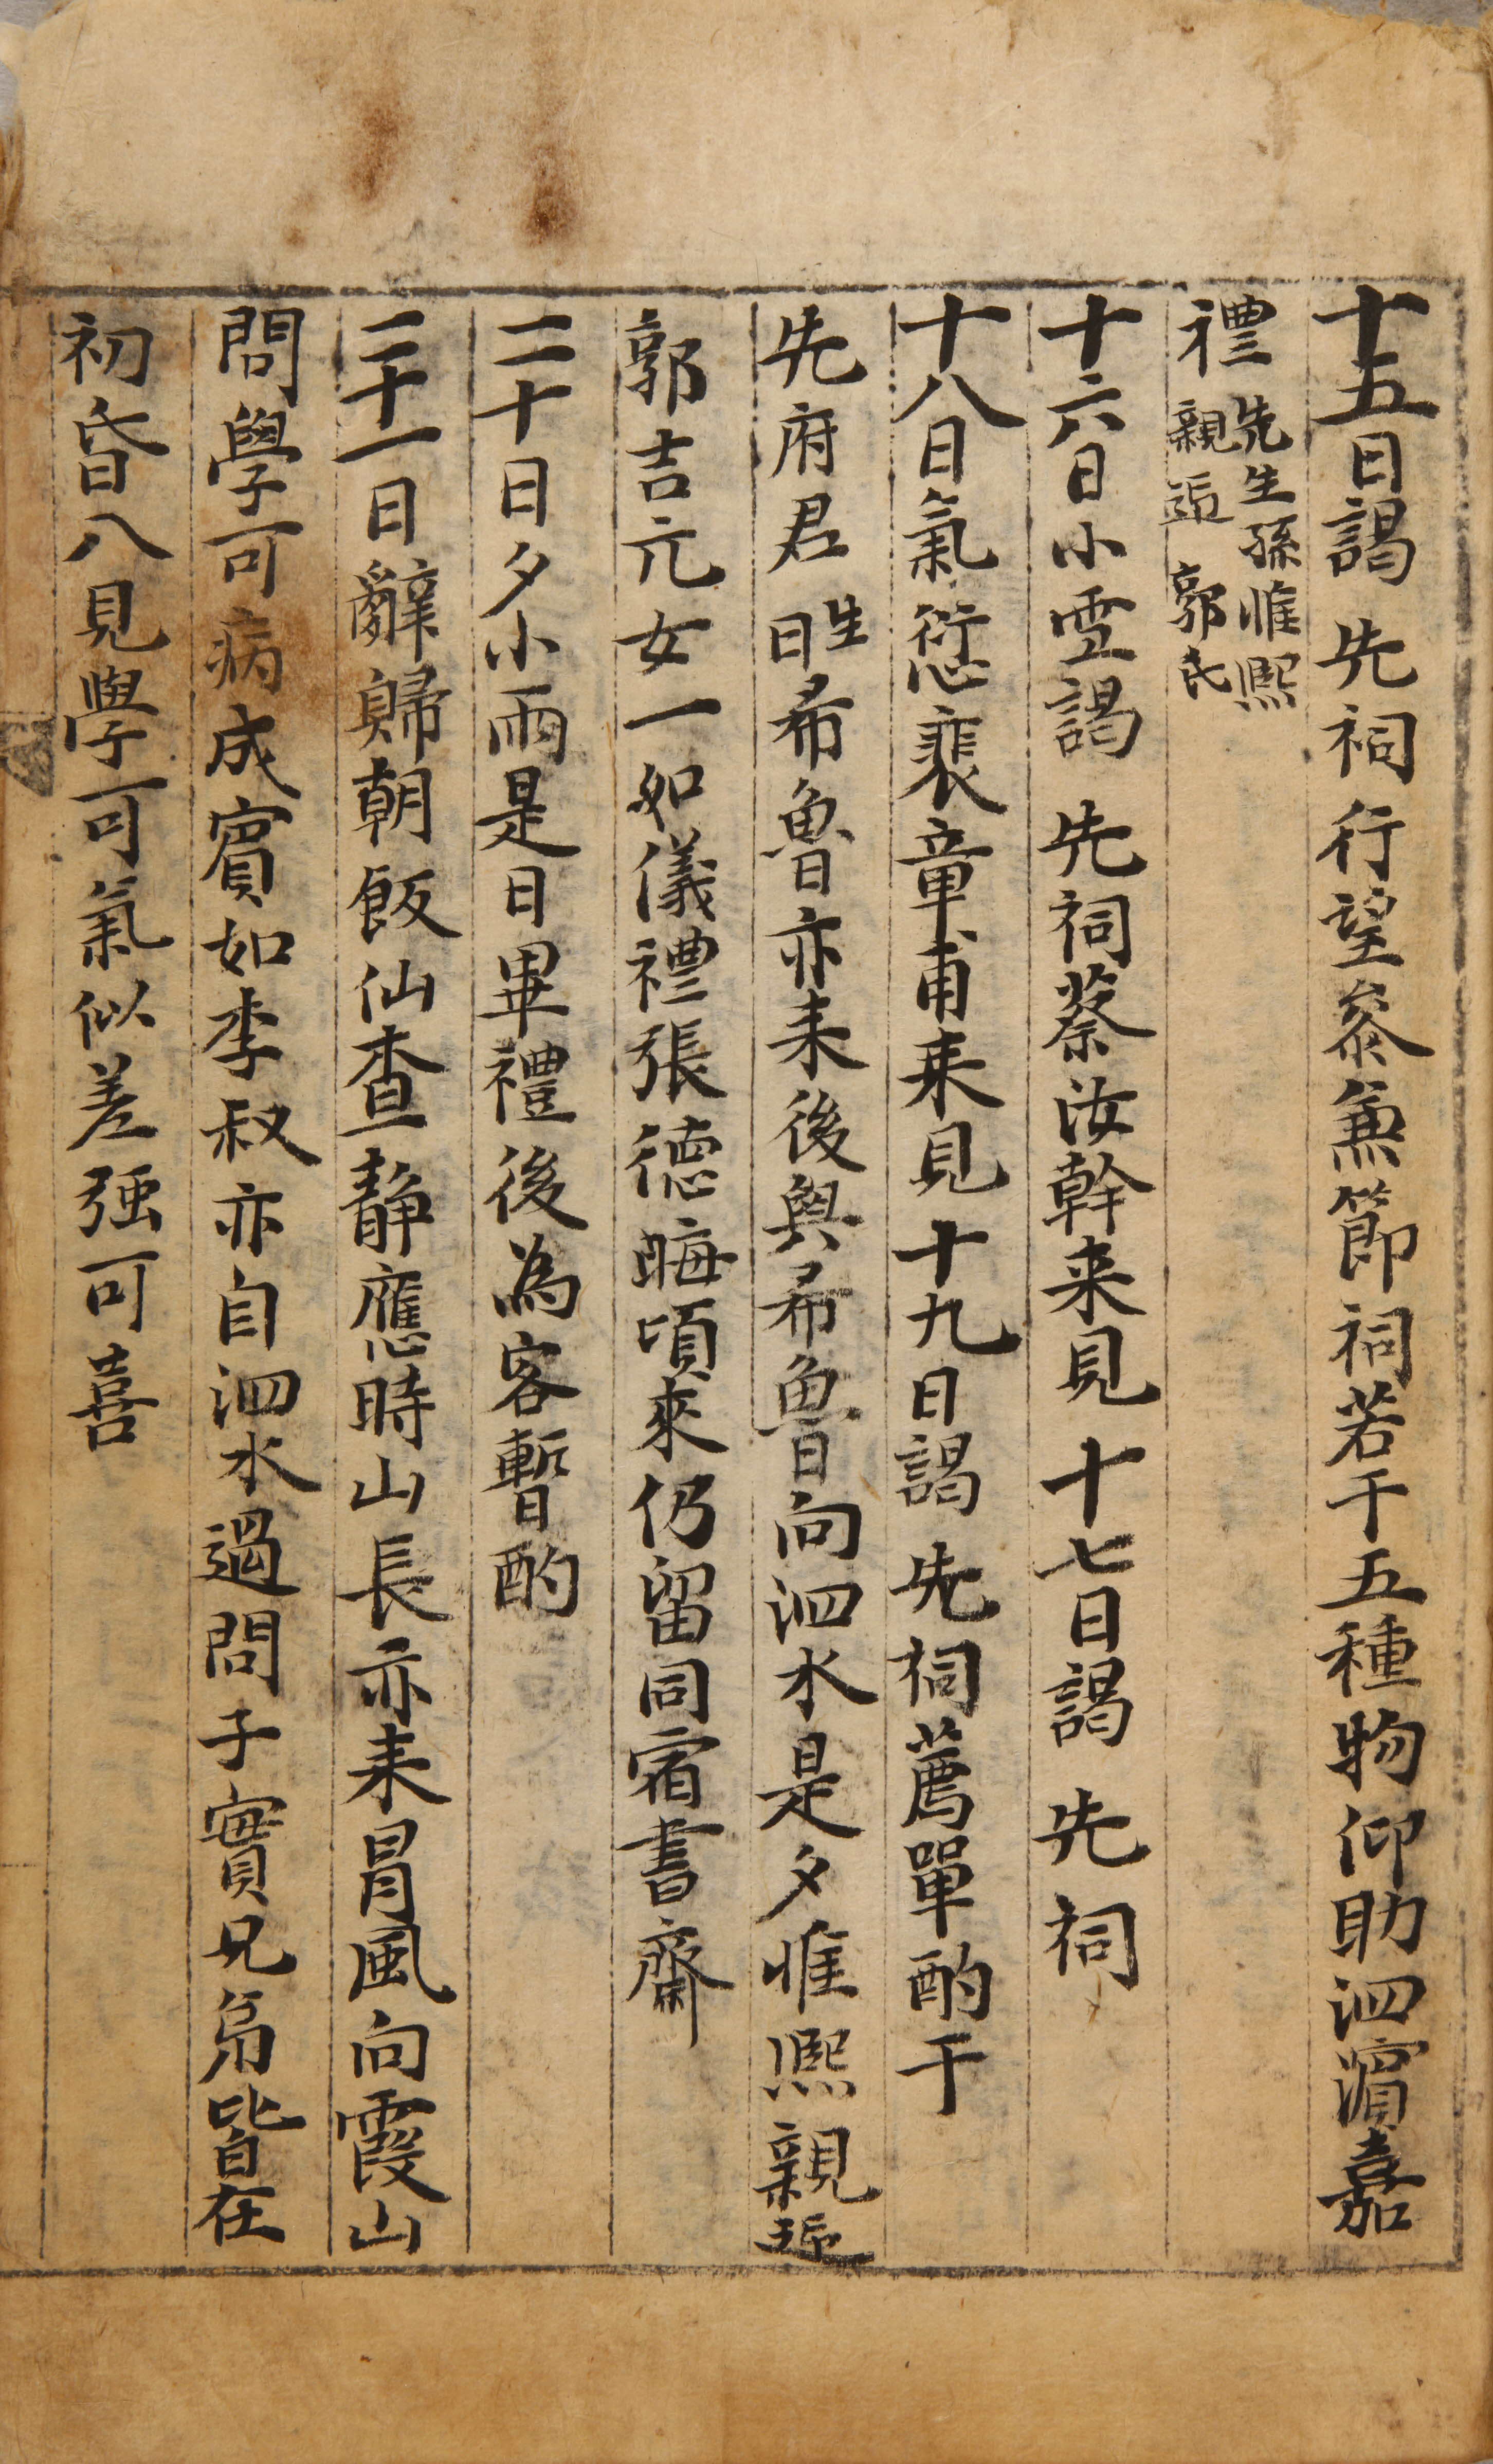 十五日謁 先祠行望叅兼節祠若干五種物仰助泗濱嘉
禮 先生孫惟熙
親迎 郭氏
十六日小雪謁 先祠蔡汝幹来見 十七日謁 先祠
十八日氣愆裴章甫来見 十九日謁 先祠薦單酌于
先府君 生日 希魯亦来後與希魯向泗水是夕惟熙親迎
郭吉元女一如儀禮張德晦頃來仍留同宿書齋
二十日夕小雨是日畢禮後為客暫酌
二十一日辭歸朝飯仙査静應時山長亦来冒風向霞山
問學可病成賓如李叔亦自泗水過問子實兄弟皆在
初昏入見學可氣似差强可喜